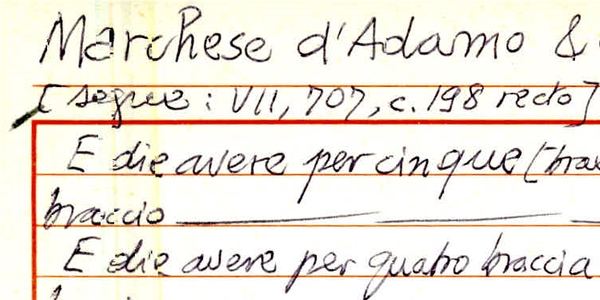 Marchese d'Adamo &
[segue: VII, 707, c. 198 recto]
E die avere per cinque [brac
braccio
E die avere per quatro braccia